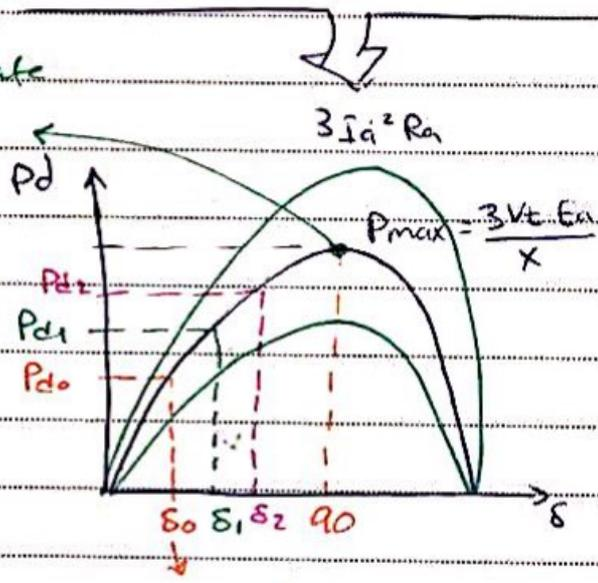 3 Ia² Ra
Pd
Pmax = 3 Vt Ea / X
Pd2
Pd1
Pdo
δo δ1 δ2 90 δ